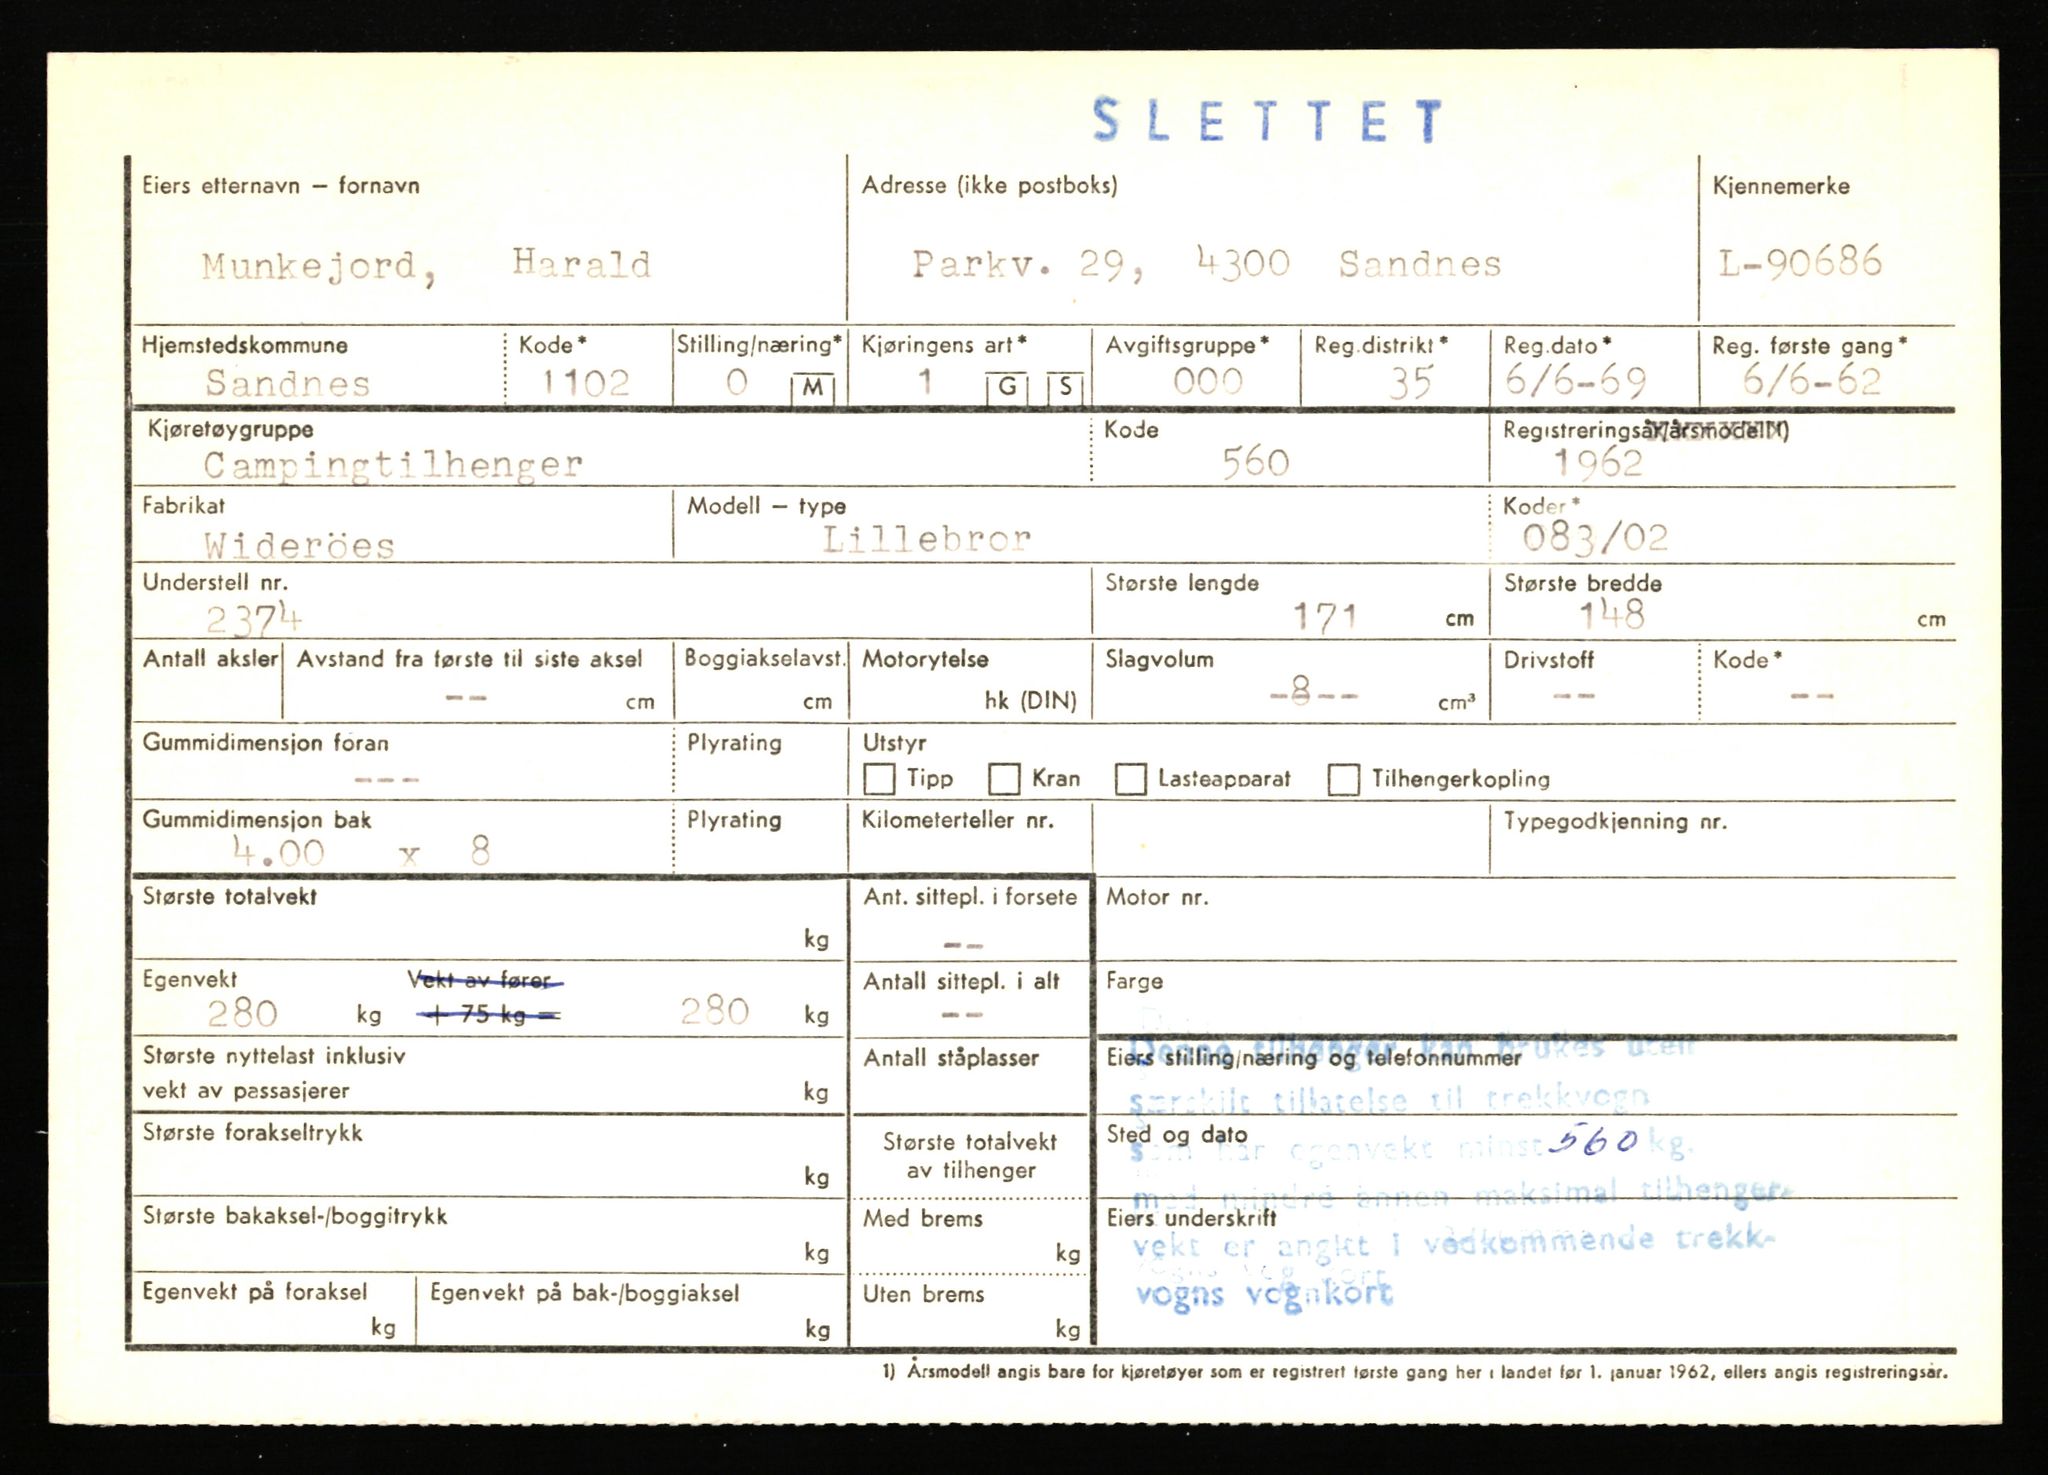 SLETTET
Eiers etternavn – fornavn
Munkejord, Harald
Adresse (ikke postboks)
Parkv. 29, 4300 Sandnes
Kjennemerke
L-90686
Hjemstedskommune
Sandnes
Kode*
1102
Stilling/næring*
0 M
Kjøringens art*
1 G S
Avgiftsgruppe*
000
Reg.distrikt*
35
Reg.dato*
6/6-69
Reg. første gang*
6/6-62
Kjøretøygruppe
Campingtilhenger
Kode
560
Registreringsår/årsmodell1)
1962
Fabrikat
Wideröes
Modell – type
Lillebror
Koder*
083/02
Understell nr.
2374
Største lengde
171 cm
Største bredde
148 cm
Antall aksler
Avstand fra første til siste aksel
-- cm
Boggiakselavst.
cm
Motorytelse
hk (DIN)
Slagvolum
-8-- cm³
Drivstoff
--
Kode*
--
Gummidimensjon foran
---
Plyrating
Utstyr
Tipp Kran Lasteapparat Tilhengerkopling
Gummidimensjon bak
4.00 x 8
Plyrating
Kilometerteller nr.
Typegodkjenning nr.
Største totalvekt
kg
Ant. sittepl. i forsete
--
Motor nr.
Egenvekt
280 kg
Vekt av fører
+ 75 kg =
280 kg
Antall sittepl. i alt
--
Farge
Største nyttelast inklusiv
vekt av passasjerer
kg
Antall ståplasser
Eiers stilling/næring og telefonnummer
Største forakseltrykk
kg
Største totalvekt
av tilhenger
Sted og dato
Største bakaksel-/boggitrykk
kg
Med brems
kg
Eiers underskrift
Egenvekt på foraksel
kg
Egenvekt på bak-/boggiaksel
kg
Uten brems
kg
Denne tilhenger kan brukes uten
særskilt tillatelse til trekkvogn
som har egenvekt minst 560 kg.
med mindre annen maksimal tilhenger-
vekt er angitt i vedkommende trekk-
vogns vognkort
1) Årsmodell angis bare for kjøretøyer som er registrert første gang her i landet før 1. januar 1962, ellers angis registreringsår.